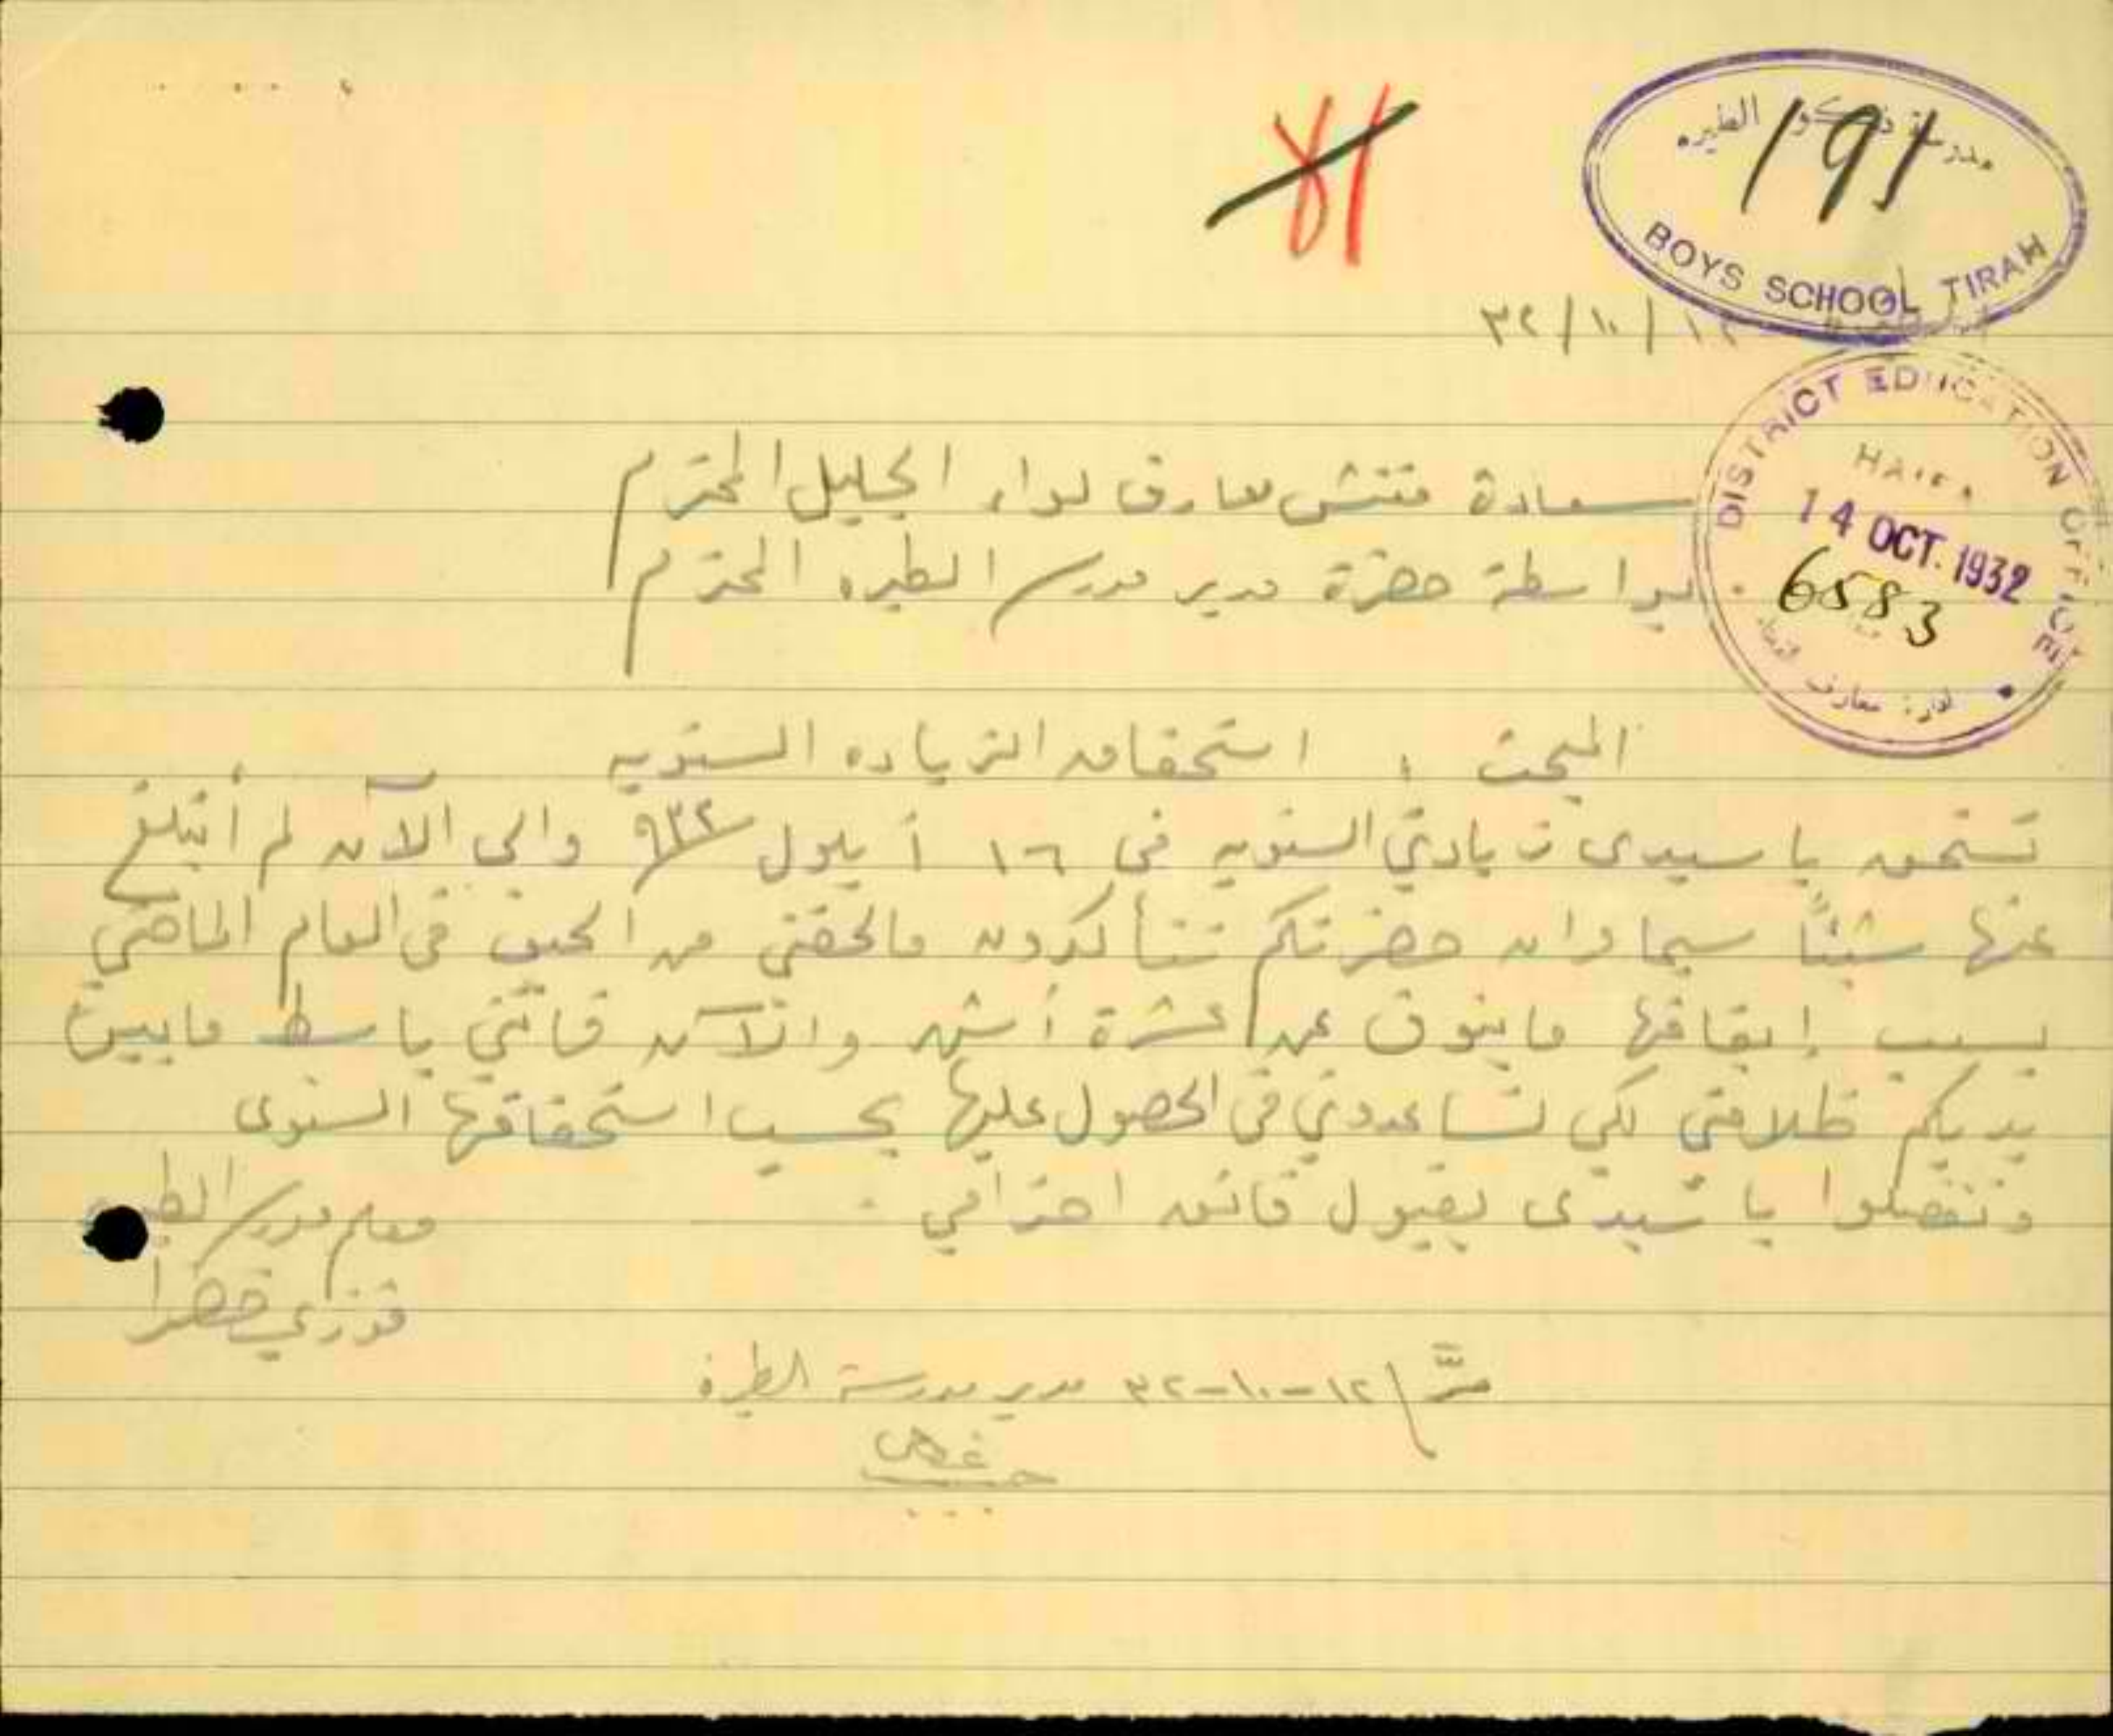 مدرسة ذكور الطيره
191
BOYS SCHOOL TIRAH
81
٣٢/١٠/١٢
DISTRICT EDUCATION OFFICE
HAIFA
14 OCT. 1932
6583
سعادة مفتش معارف لواء الجليل المحترم
بواسطة حضرة مدير مدرسة الطيره المحترم
المبحث : استحقاق الزياده السنويه
تستحق يا سيدي زيادتي السنويه في ١٦ أيلول ٩٣٢ والى الآن لم أتبلغ
عنها شيئاً سيما وان حضرتكم تتأكدون مالحقني من الحيف في العام الماضي
بسبب إيقافها ماينوف عن عشرة أشهر والآن فانني باسط مابين
يديكم ظلامتي لكي تساعدوني في الحصول عليها بحسب استحقاقها السنوي
وتفضلوا يا سيدي بقبول فائق احترامي .
معلم مدرسة الطيره
فوزي خضرا
١٢-١٠-٣٢ مدير مدرسة الطيرة
حبيب